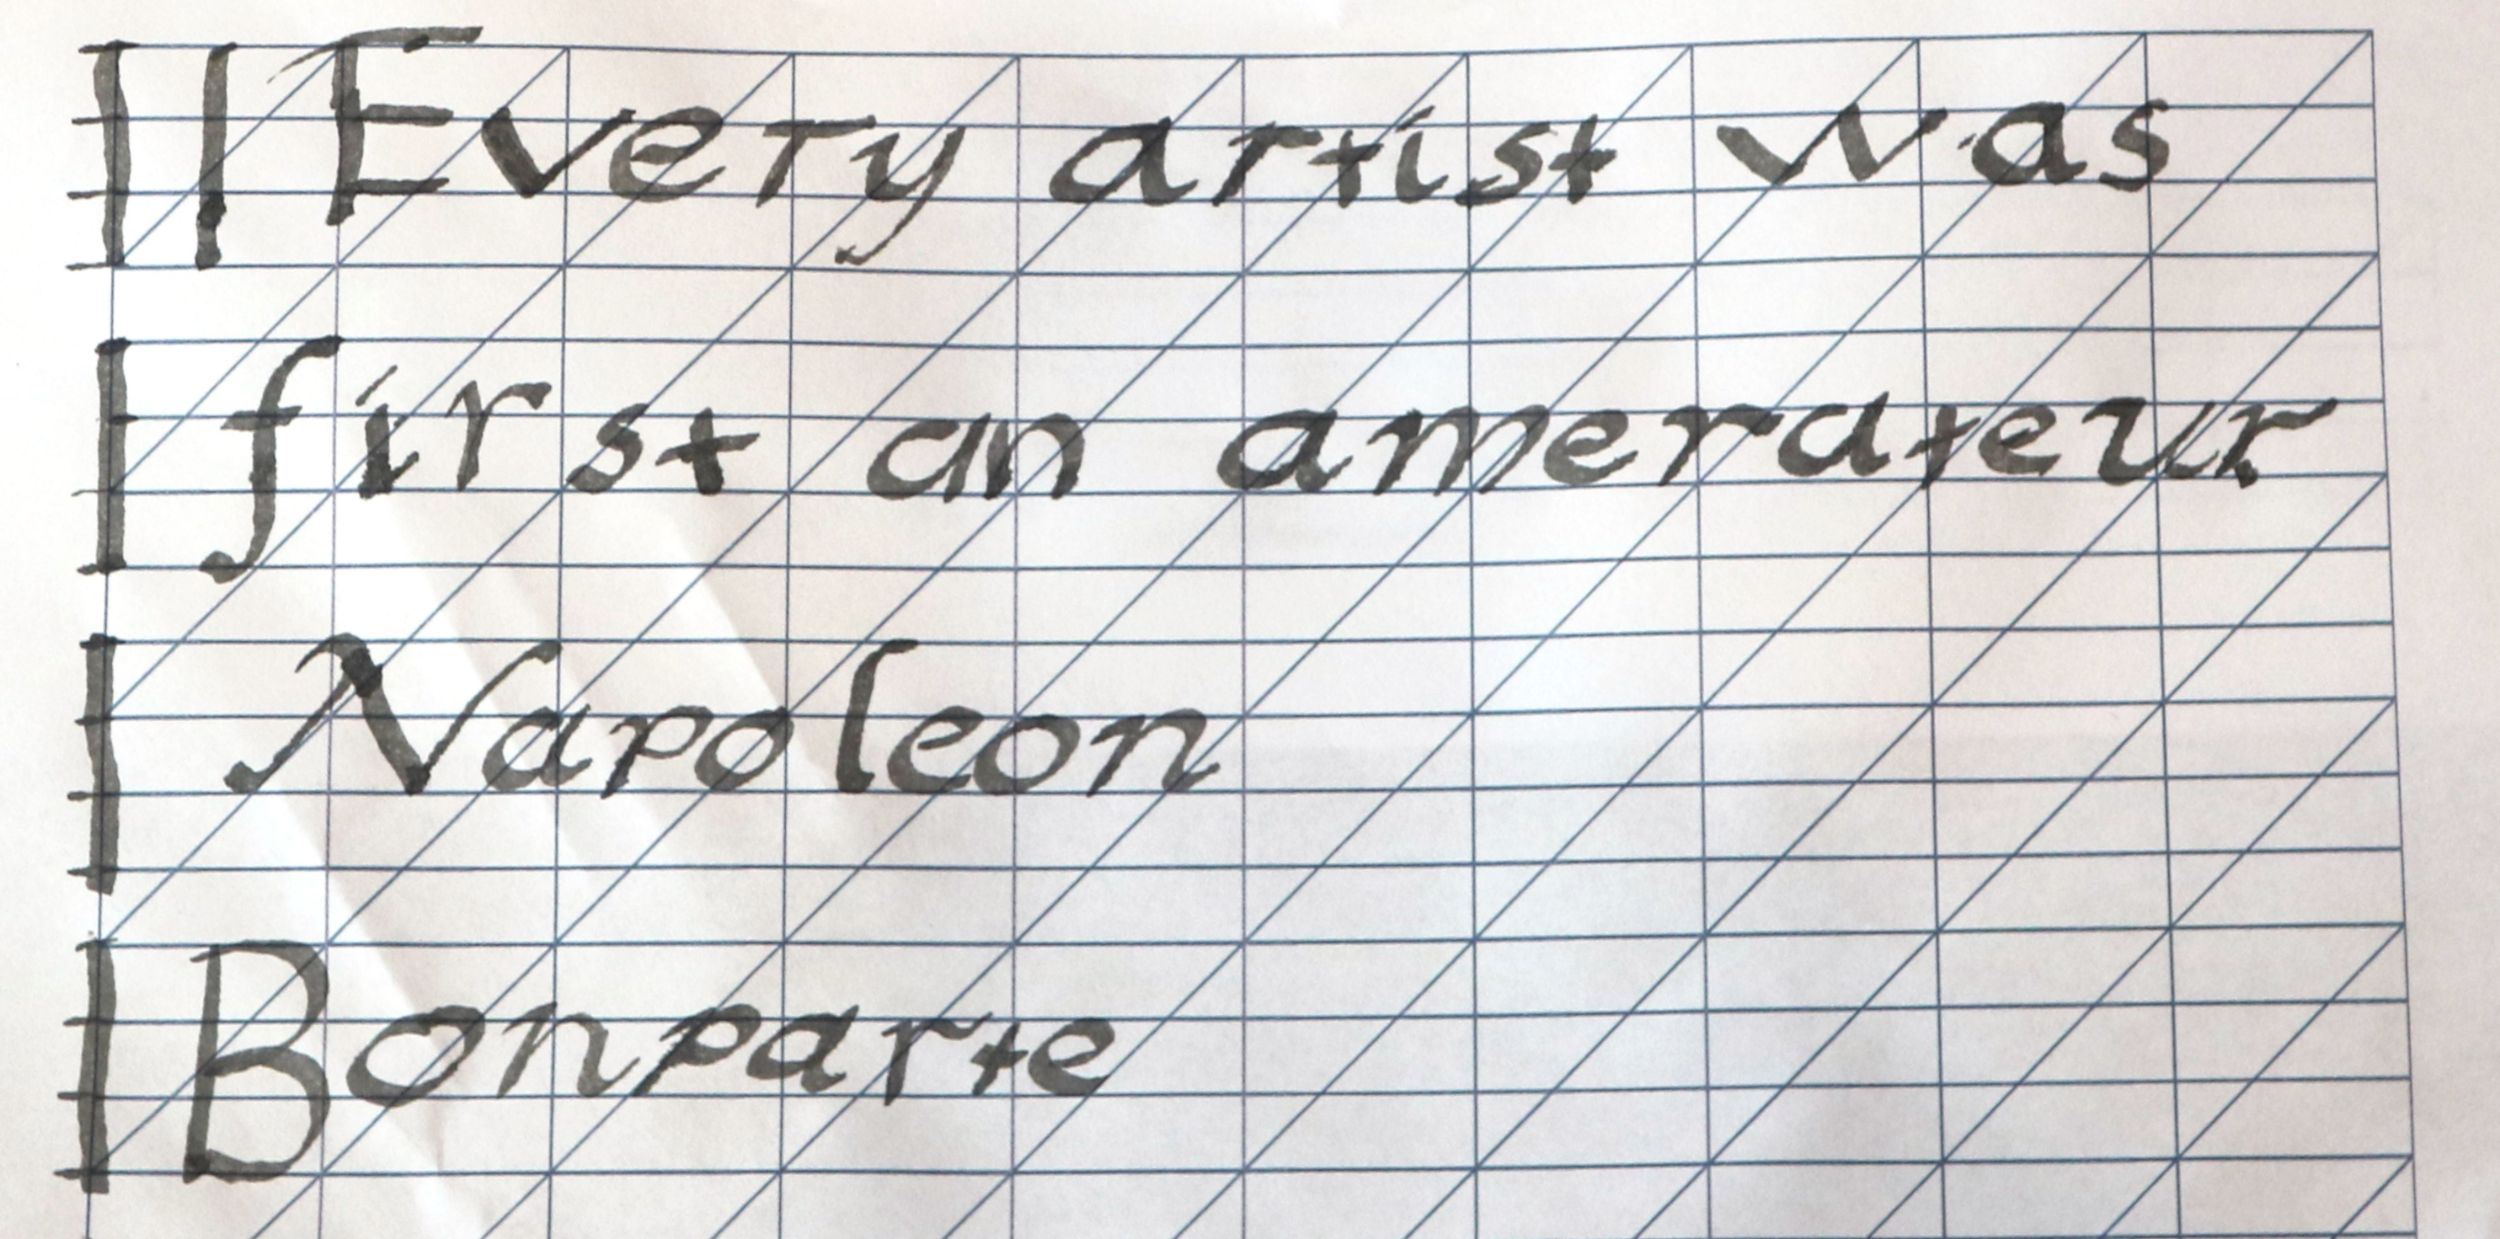 Every artist was
first an amerateur
Napoleon
Bonparte